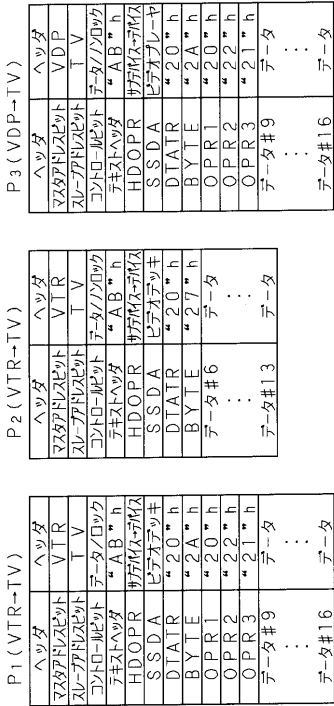 P1(VTR→TV)
ヘッダ ヘッダ
マスタアドレスビット VTR
スレーブアドレスビット TV
コントロールビット データ/ロック
テキストヘッダ “AB”h
HDOPR サブデバイス→デバイス
SSDA ビデオデッキ
DTATR “20”h
BYTE “2A”h
OPR1 “20”h
OPR2 “22”h
OPR3 “21”h
データ#9 データ
⋮ ⋮
データ#16 データ
P2(VTR→TV)
ヘッダ ヘッダ
マスタアドレスビット VTR
スレーブアドレスビット TV
コントロールビット データ/ノンロック
テキストヘッダ “AB”h
HDOPR サブデバイス→デバイス
SSDA ビデオデッキ
DTATR “20”h
BYTE “27”h
データ#6 データ
⋮ ⋮
データ#13 データ
P3(VDP→TV)
ヘッダ ヘッダ
マスタアドレスビット VDP
スレーブアドレスビット TV
コントロールビット データ/ノンロック
テキストヘッダ “AB”h
HDOPR サブデバイス→デバイス
SSDA ビデオプレーヤ
DTATR “20”h
BYTE “2A”h
OPR1 “20”h
OPR2 “22”h
OPR3 “21”h
データ#9 データ
⋮ ⋮
データ#16 データ